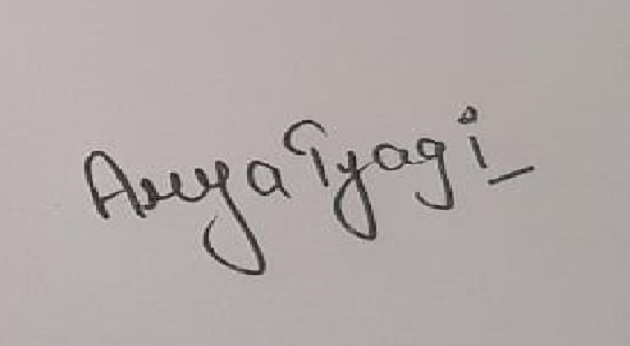 Arya Tyagi